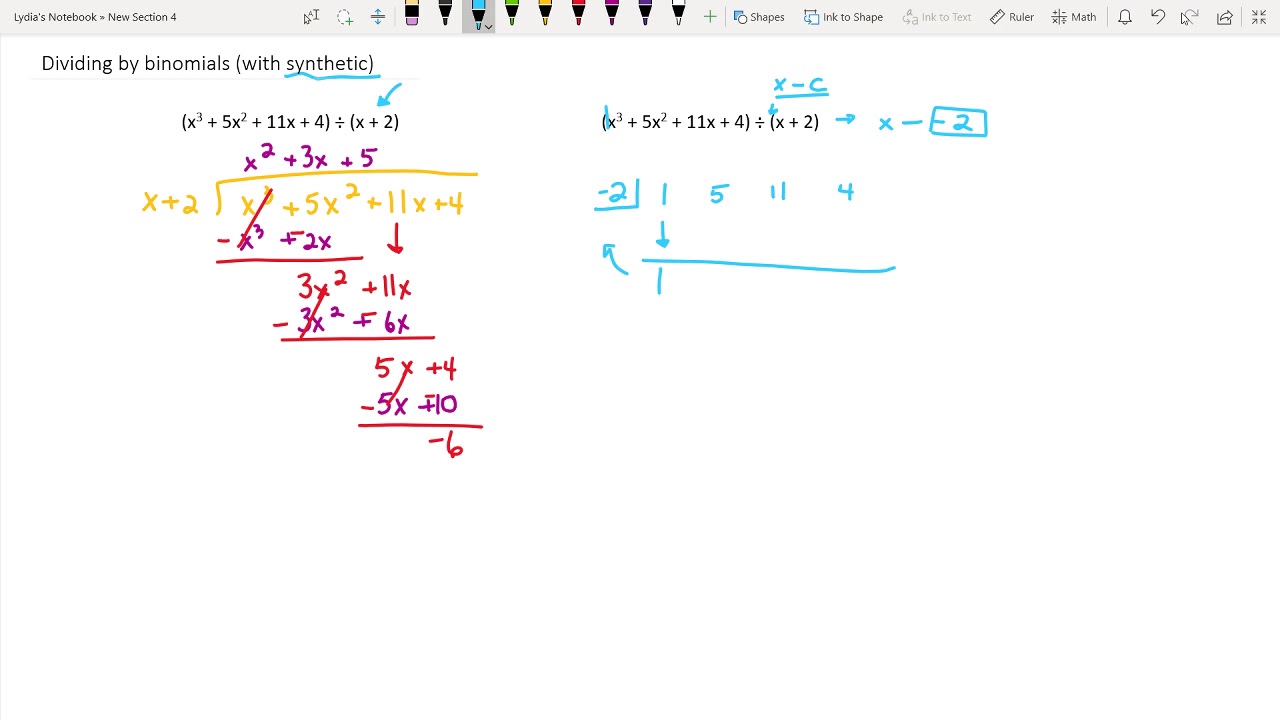 Lydia's Notebook » New Section 4
Shapes
Ink to Shape
Ink to Text
Ruler
Math
Dividing by binomials (with synthetic)
(x³ + 5x² + 11x + 4) ÷ (x + 2)
x² + 3x + 5
x + 2 x³ + 5x² + 11x + 4
- x³ + - 2x
3x² + 11x
- 3x² + - 6x
5x + 4
- 5x + - 10
-6
x - c
(x³ + 5x² + 11x + 4) ÷ (x + 2) → x - -2
-2 1 5 11 4
1